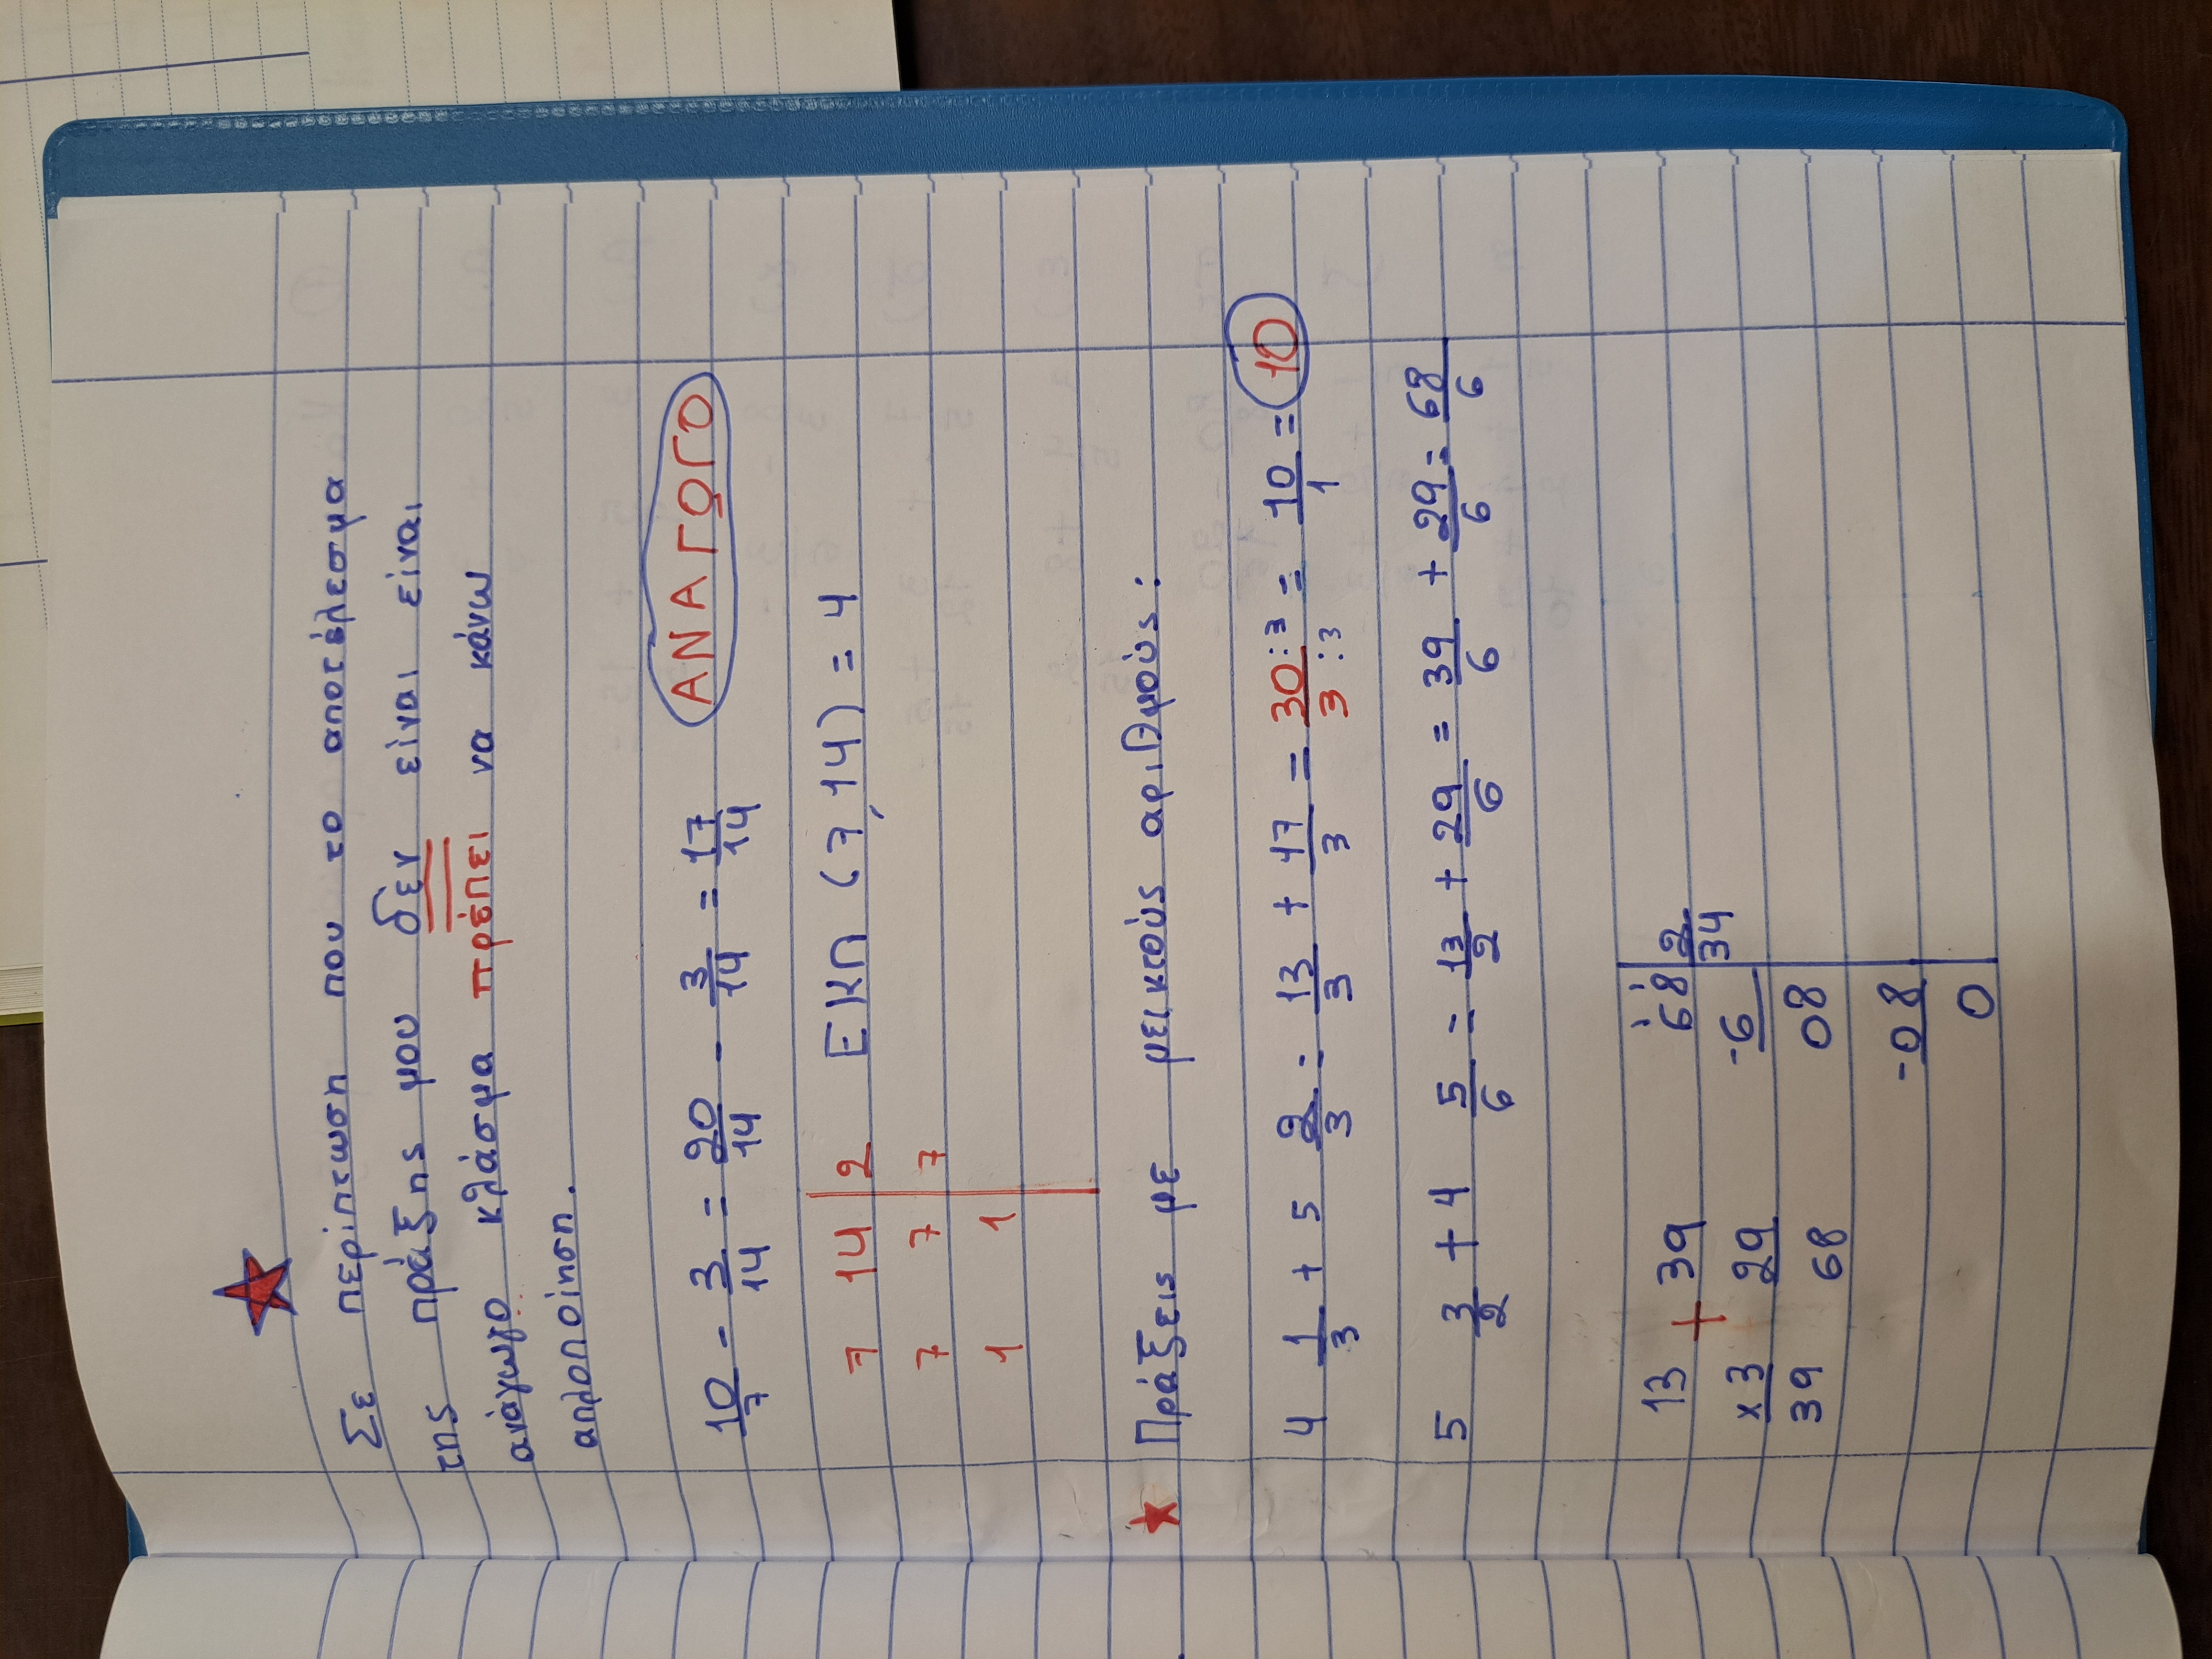 Σε περίπτωση που το αποτέλεσμα
της πράξης μου δεν είναι είναι
ανάγωγο κλάσμα πρέπει να κάνω
απλοποίηση.
10/7 - 3/14 = 20/14 - 3/14 = 17/14 ΑΝΑΓΩΓΟ
7 14 | 2 ΕΚΠ (7,14) = 4
7 7 | 7
1 1 |
Πράξεις με μεικτούς αριθμούς:
4 1/3 + 5 2/3 = 13/3 + 17/3 = 30:3/3:3 = 10/1 = 10
5 3/2 + 4 5/6 = 13/2 + 29/6 = 39/6 + 29/6 = 68/6
13 + 39 68 | 2
x 3 29 -6 | 34
39 68 08
-08
0